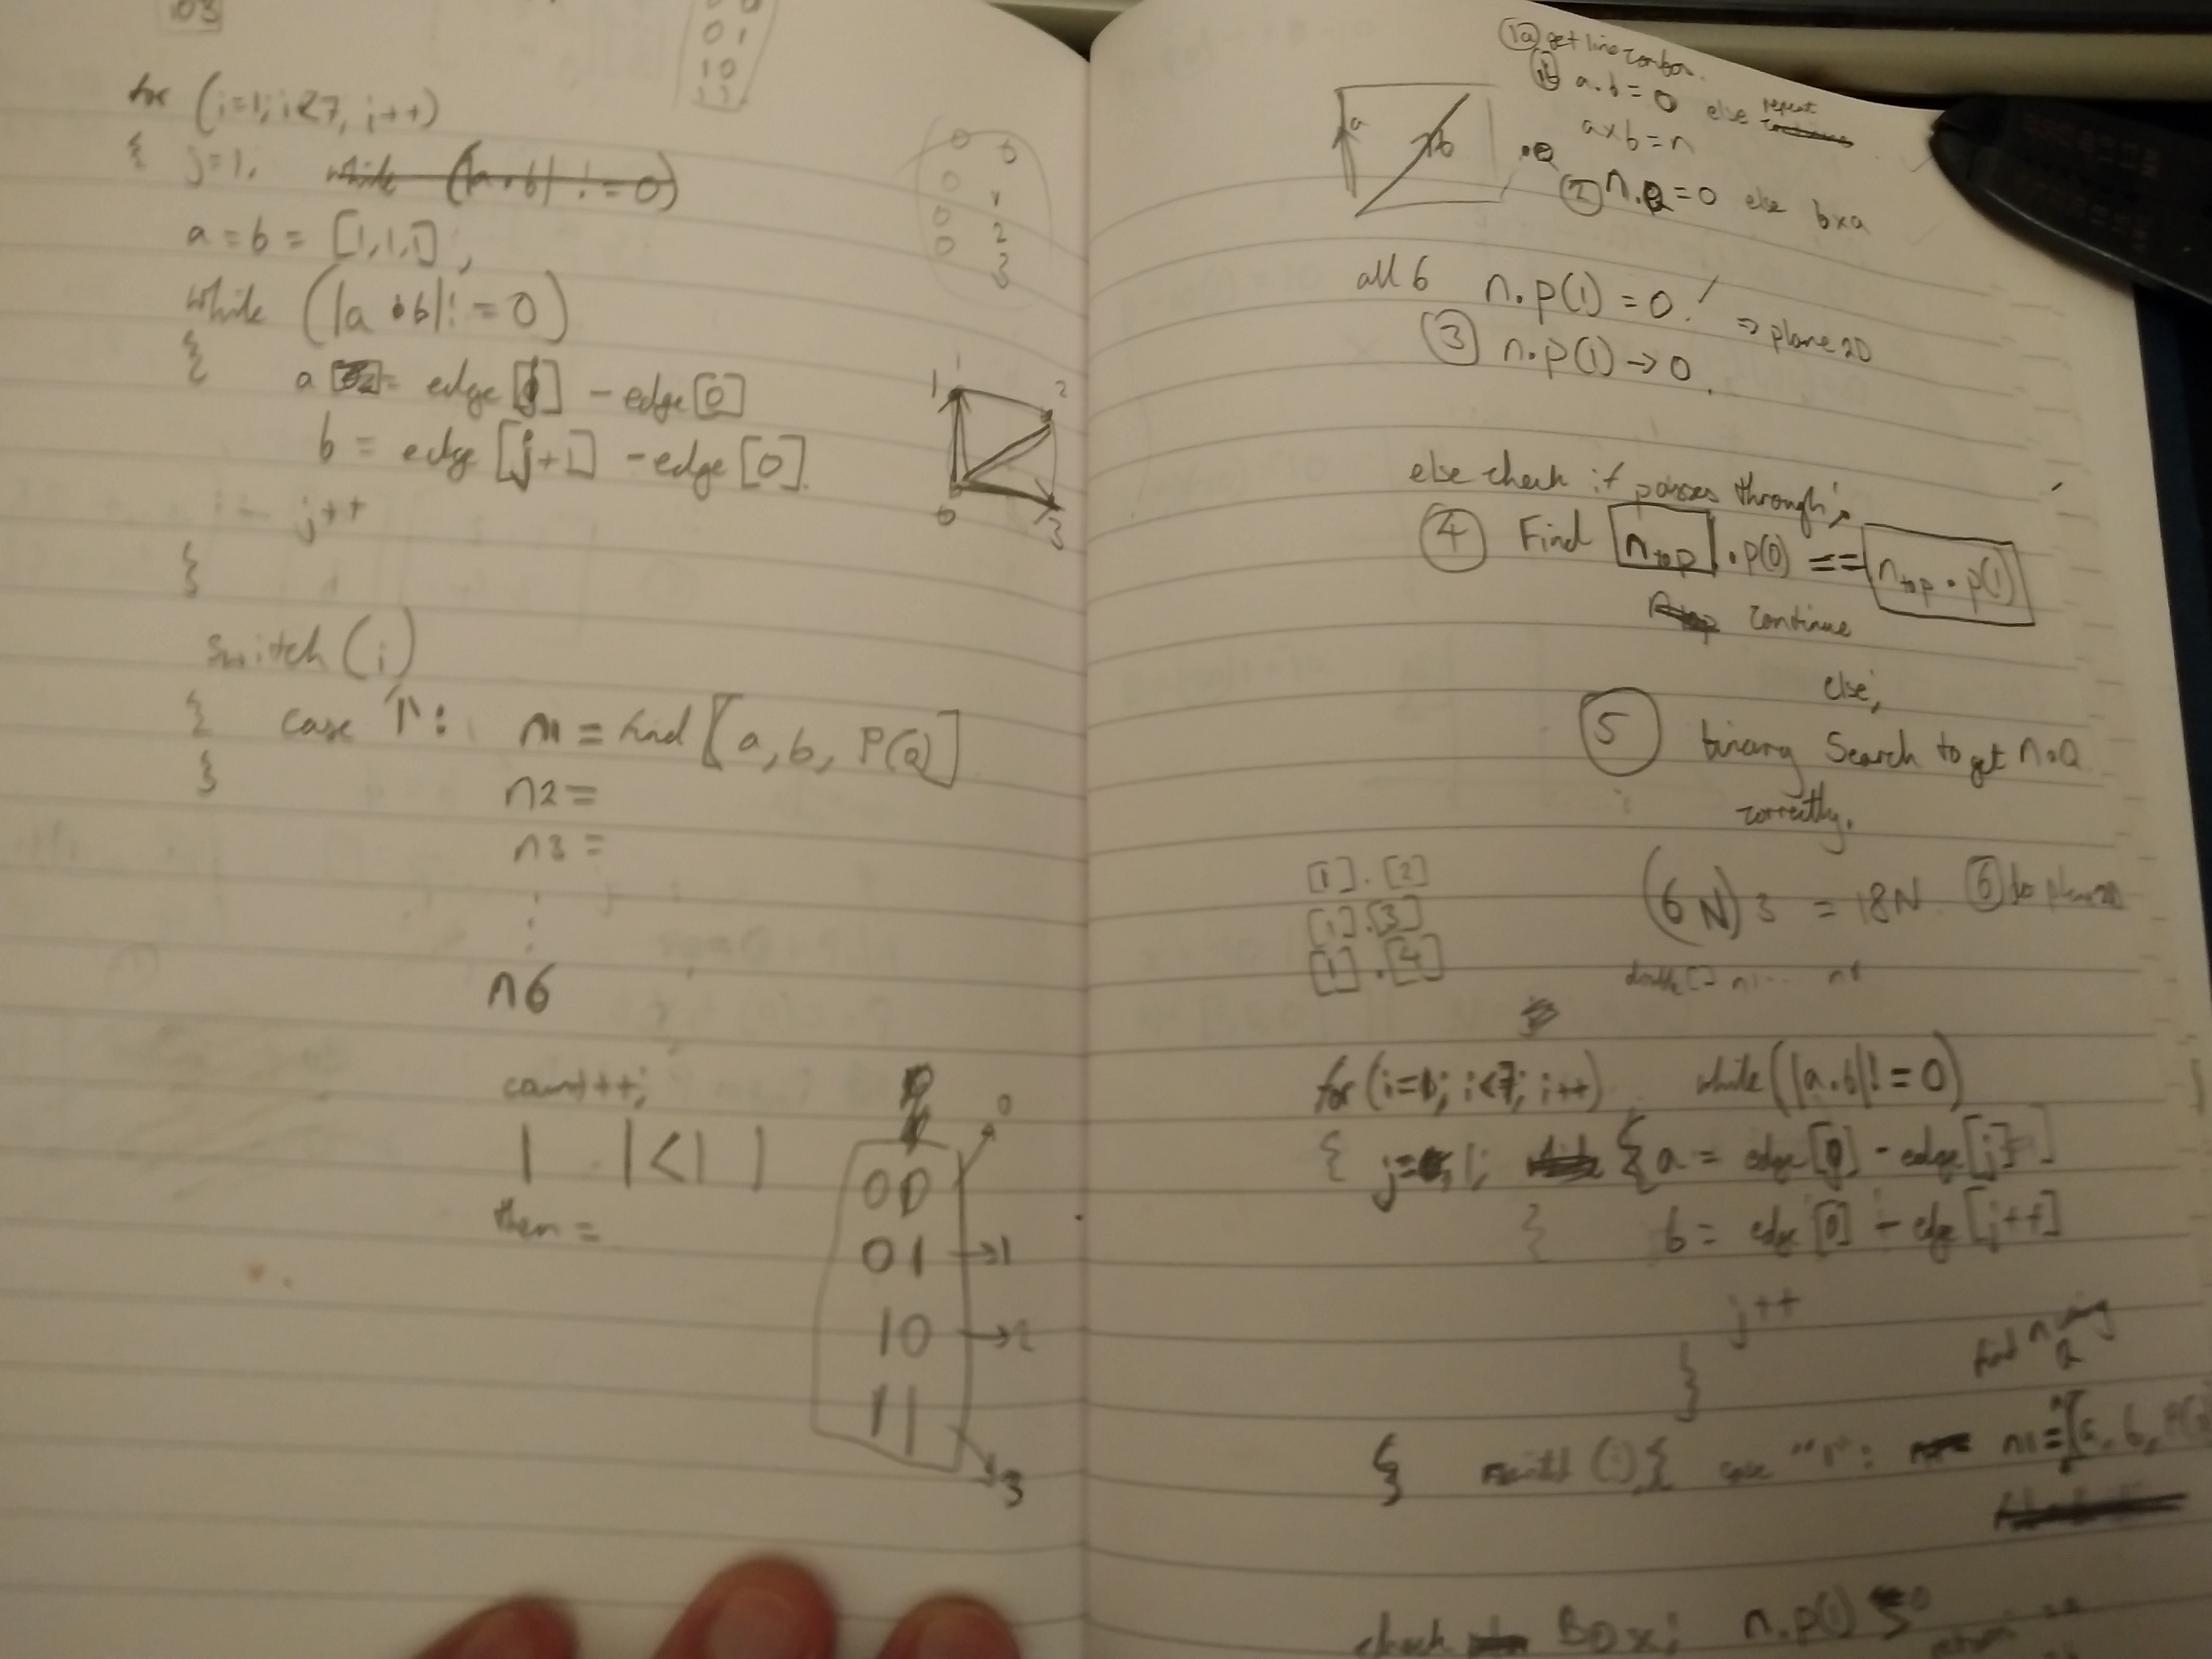 03
01
10
11
for (i=1; i<7, i++)
{ j=1, while (|a•b| != 0)
a = b = [1,1,1],
while (|a•b| != 0)
{ a = edge[j] - edge[0]
b = edge[j+1] - edge[0].
j++
}
switch (i)
{ case '1': n1 = find [a, b, P(Q)]
} n2 =
n3 =
n6
count++;
| |<| |
then =
0 0
0 1
0 2
0 3
1 2
0 3
00 → 0
01 → 1
10 → 2
11 → 3
1a get line
1b a.b = 0 else repeat
a×b = n
a b .Q
2 n.Q = 0 else b×a
all 6 n.p(1) = 0! ⇒ plane2D
3 n.p(1) → 0.
else check if passes through;
4 Find ntop . p(0) == ntop . p(1)
continue
else,
5 binary Search to get n.Q
correctly.
[1].[2]
[1].[3]
[1].[4]
(6N)3 = 18N 6 do plane2D
double [] n1...
for (i=1; i<7; i++) while (|a.b| != 0)
{ j= 1; { a = edge[0] - edge[j]
} b = edge[0] - edge[j++]
j++
find n using
Q
}
{ switch (i) { case "1": n1 = [a, b, P(Q)
check Box; n.p(1)
return